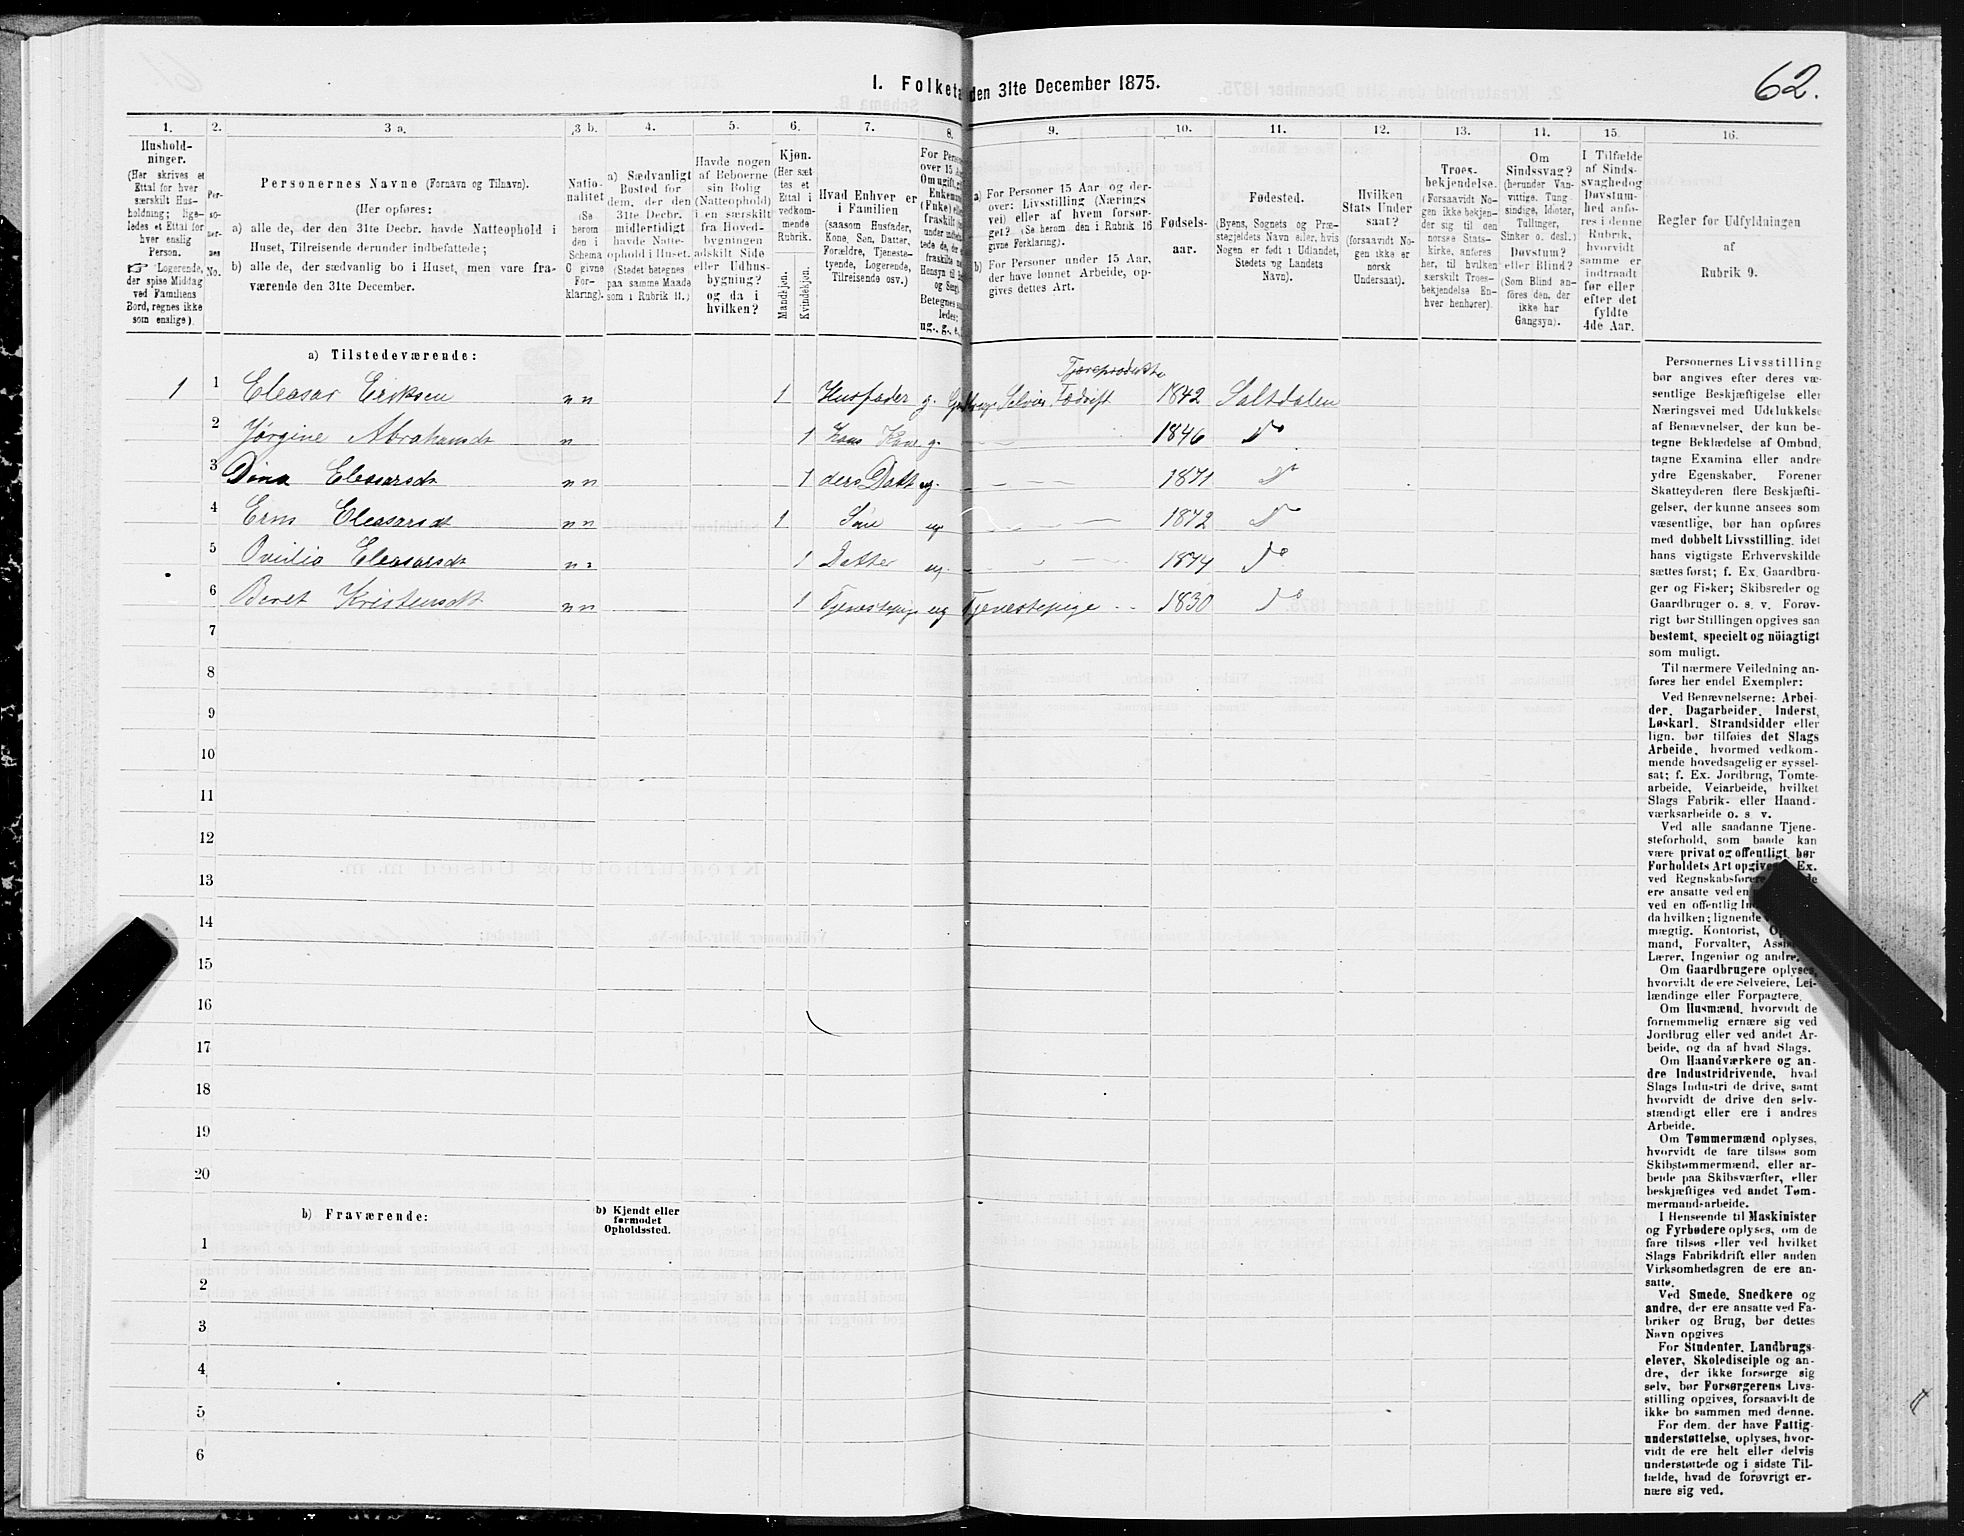 62.
I. Folketæ den 31te December 1875.
1. 2. 3 a. 3 b. 4. 5. 6. 7. 8. 9. 10. 11. 12. 13. 14. 15. 16.
Husholdninger.
(Her skrives et
Ettal for hver
særskilt Husholdning; ligeledes et Ettal for
hver enslig
Person.
☞ Logerende,
der spise Middag
ved Familiens
Bord, regnes ikke
som enslige).
Personernes No.
Personernes Navne (Fornavn og Tilnavn).
(Her opføres:
a) alle de, der den 31te Decbr. havde Natteophold i
Huset, Tilreisende derunder indbefattede;
b) alle de, der sædvanlig bo i Huset, men vare fraværende den 31te December.
Nationalitet
(Se
herom
den i
Schema
C givne
Forklaring).
a) Sædvanligt
Bosted for
dem, der den
31te Decbr.
midlertidigt
havde Natteophold i Huset.
(Stedet betegnes
paa samme Maade
som i Rubrik 11.)
Havde nogen
af Beboerne
sin Bolig
(Natteophold)
i en særskilt
fra Hovedbygningen
adskilt Side
eller Udhusbygning?
og da i
hvilken?
Kjøn.
(Her sættes et
Ettal i
vedkommende
Rubrik.
Mandkjøn.
Kvindekjøn.
Hvad Enhver er
i Familien
(saasom Husfader,
Kone, Søn, Datter,
Forældre, Tjenestetyende, Logerende,
Tilreisende osv.)
a) For Personer 15 Aar og derover: Livsstilling (Næringsvei) eller af hvem forsørget? (Se herom den i Rubrik 16
givne Forklaring).
b) For Personer under 15 Aar,
der have lønnet Arbeide, opgives dettes Art.
Fødselsaar.
Fødested.
(Byens, Sognets og Præstegjeldets Navn eller, hvis
Nogen er født i Udlandet,
Stedets og Landets
Navn).
Hvilken
Stats Undersaat?
(forsaavidt Nogen ikke er
norsk
Undersaat).
Troesbekjendelse.
(Forsaavidt Nogen ikke bekjender sig til den
norske Statskirke, anføres
her, til hvilken
særskilt Troesbekjendelse Enhver henhører).
Om
Sindssvag?
(herunder Vanvittige, Tungsindige, Idioter,
Tullinger,
Sinker o. desl.)
Døvstum?
eller Blind?
(Som Blind anføres den, der
ikke har
Gangsyn).
I Tilfælde
af Sindssvaghed og
Døvstumhed anføres i denne
Rubrik,
hvorvidt
samme er
indtraadt
før eller
efter det
fyldte
4de Aar.
Regler for Udfyldningen
af
Rubrik 9.
a) Tilstedeværende:
Tjæreprodukt
1 1 Eleasar Eriksen n n 1 Husfader g. Selveier Fædrift 1842 Saltdalen
2 Jørgine Abrahamsdt n 1 Hans Kone g. 1846 Do
3 Dina Eleasarsdt n n 1 ders Datt ug. 1871 Do
4 Erns Eleasarsdt n n 1 Søn ug 1872 Do
5 Ovidia Eleasarsdt n n 1 Datter ug. 1874 Do
6 Beret Kristensdt n n 1 Tjenestepige ug Tjenestepige 1830 Do
7
8
9
10
11
12
13
14
15
16
17
18
19
20
b) Fraværende:
b) Kjendt eller
formodet
Opholdssted.
1
2
3
4
5
6
Personernes Livsstilling
bør angives efter deres væsentlige Beskjæftigelse eller
Næringsvei med Udelukkelse
af Benævnelser, der kun betegne Beklædelse af Ombud,
tagne Examina eller andre
ydre Egenskaber. Forener
Skatteyderen flere Beskjæftigelser, der kunne ansees som
væsentlige, bør han opføres
med dobbelt Livsstilling, idet
hans vigtigste Erhvervskilde
sættes først; f. Ex. Gaardbruger og Fisker; Skibsreder og
Gaardbruger o. s. v. Forøvrigt bør Stillingen opgives saa
bestemt, specielt og nöiagtigt
som muligt.
Til nærmere Veiledning anføres her endel Exempler:
Ved Benævnelserne: Arbeider, Dagarbeider, Inderst,
Løskarl, Strandsidder eller
lign. bør tilføies det Slags
Arbeide, hvormed vedkommende hovedsagelig er sysselsat; f. Ex. Jordbrug, Tomtearbeide, Veiarbeide, hvilket
Slags Fabrik- eller Haandværksarbeide o. s v.
Ved alle saadanne Tjenesteforhold, som baade kan
være privat og offentligt, bør
Forholdets Art opgives Ex.
ved Regnskabsførere
ere ansatte ved en
ved en offentlig
da hvilken; lignende
mægtig, Kontorist,
mand, Forvalter,
Lærer, Ingeniør og andre.
Om Gaardbrugere oplyses,
hvorvidt de ere Selveiere, Leilændinge eller Forpagtere.
Om Husmænd, hvorvidt de
fornemmelig ernære sig ved
Jordbrug eller ved andet Arbeide, og da af hvad Slags.
Om Haandværkere og andre Industridrivende, hvad
Slags Industri de drive, samt
hvorvidt de drive den selvstændigt eller ere i andres
Arbeide.
Om Tømmermænd oplyses,
hvorvidt de fare tilsøs som
Skibstømmermænd, eller arbeide paa Skibsværfter, eller
beskjæftiges ved andet Tømmermandsarbeide.
I Henseende til Maskinister
og Fyrbødere oplyses, om de
fare tilsøs eller ved hvilket
Slags Fabrikdrift eller anden
Virksomhedsgren de ere ansatte.
Ved Smede, Snedkere og
andre, der ere ansatte ved Fabriker og Brug, bør dettes
Navn opgives
For Studenter, Landbrugselever, Skoledisciple og andre, der ikke forsørge sig
selv, bør Forsørgerens Livsstilling opgives, forsaavidt de
ikke bo sammen med denne.
For dem, der have Fattigunderstøttelse, oplyses, hvorvidt de ere helt eller delvis
understøttede og i sidste Tilfælde, hvad de forøvrigt ernære sig ved.